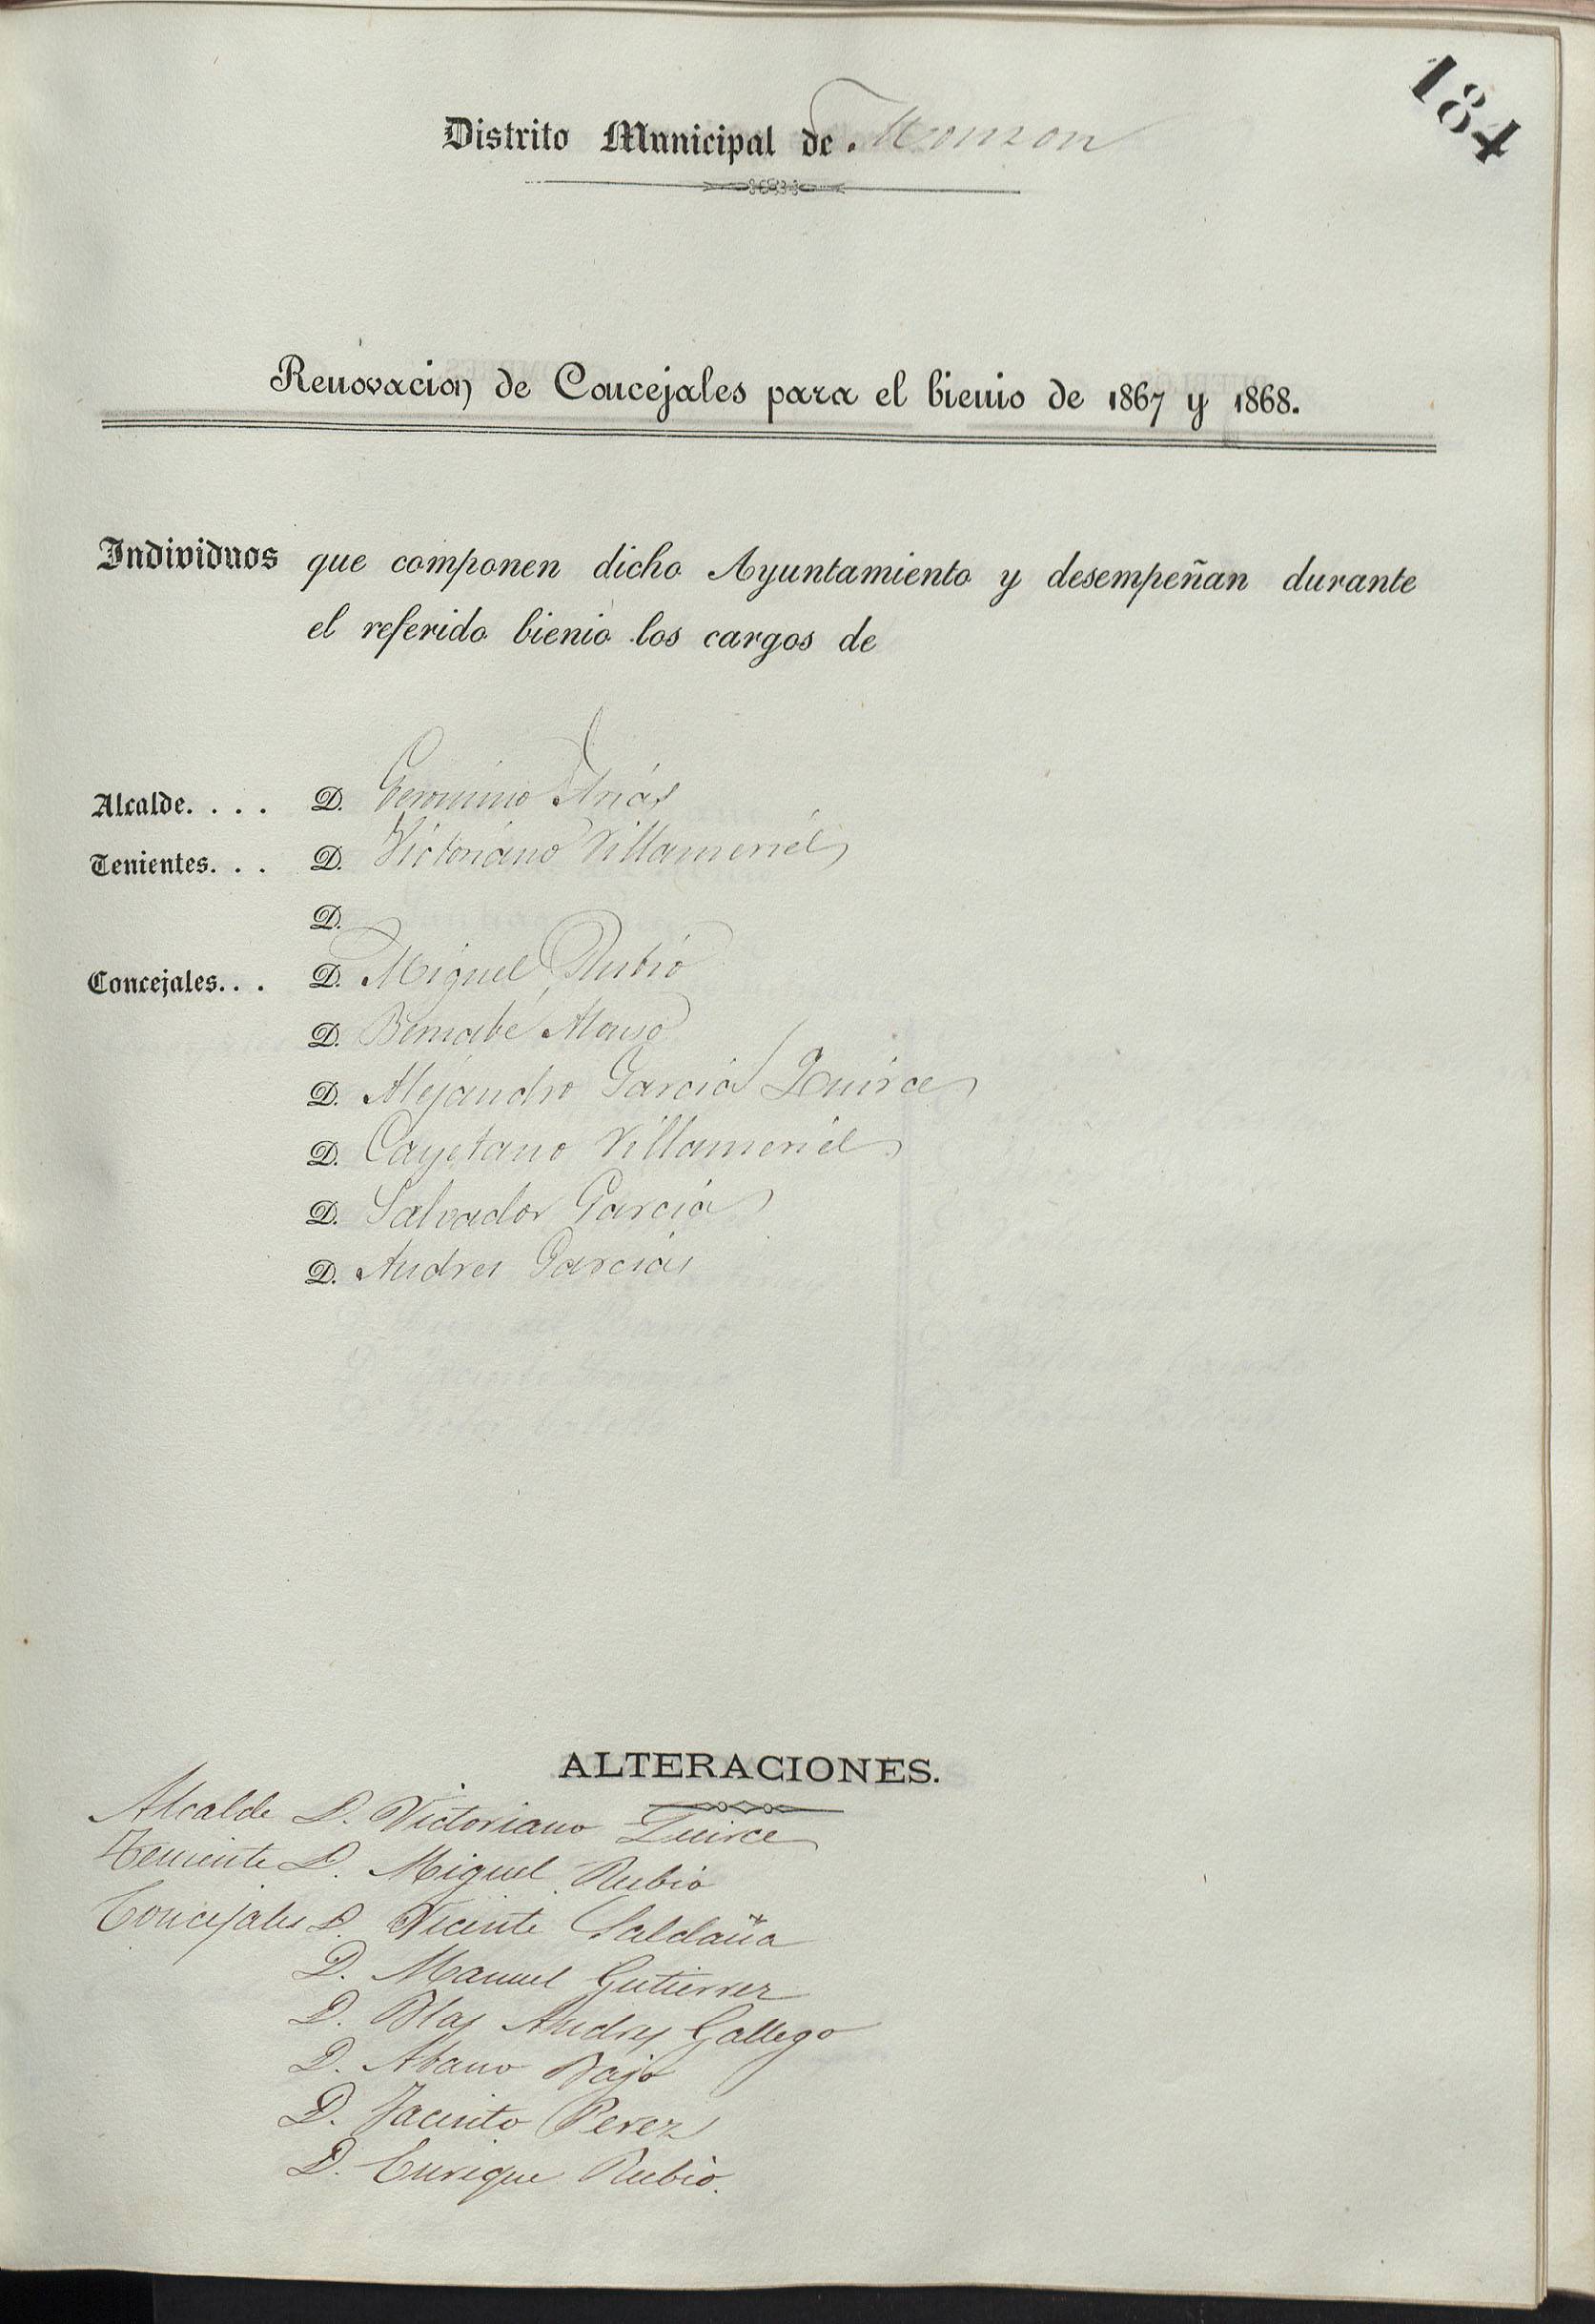 184
Distrito Municipal de Monzon
Renovacion de Concejales para el bienio de 1867 y 1868.
Individuos que componen dicho Ayuntamiento y desempeñan durante
el referido bienio los cargos de
Alcalde. . . . D. Geronimo Arias
Tenientes. . . D. Victoriano Villameriel
D.
Concejales. . . D. Miguel Rubio
D. Bernabé Alonso
D. Alejandro Garcia Quirce
D. Cayetano Villameriel
D. Salvador Garcia
D. Andres Garcias
ALTERACIONES.
Alcalde D. Victoriano Quirce
Teniente D. Miguel Rubio
Concejales D. Vicente Saldaña
D. Manuel Gutierrez
D. Blas Andres Gallego
D. Rojo
D. Jacinto Perez
D. Enrique Rubio.